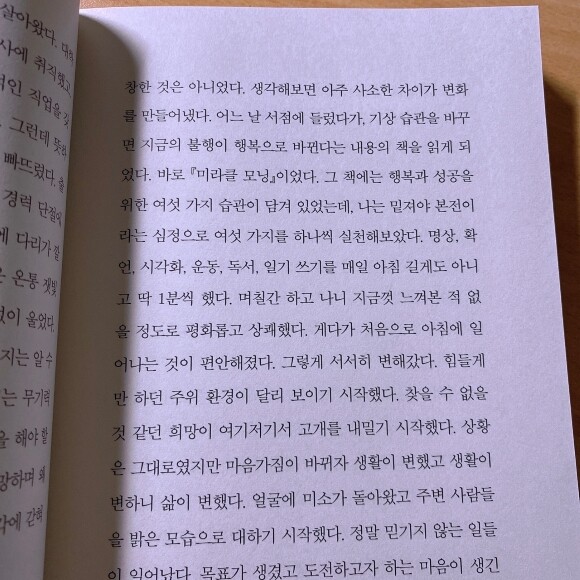 살아왔다.
사에 취직했고
직업을
그런데
빠뜨렸다.
경력 단절
에 다리가
온통 잿빛
없이 울었다.
지는 알 수
는 무기력
을 해야 할
망하며 왜
에 갇혀
창한 것은 아니었다. 생각해보면 아주 사소한 차이가 변화
를 만들어냈다. 어느 날 서점에 들렀다가, 기상 습관을 바꾸
면 지금의 불행이 행복으로 바뀐다는 내용의 책을 읽게 되
었다. 바로 『미라클 모닝』이었다. 그 책에는 행복과 성공을
위한 여섯 가지 습관이 담겨 있었는데, 나는 밑져야 본전이
라는 심정으로 여섯 가지를 하나씩 실천해보았다. 명상, 확
언, 시각화, 운동, 독서, 일기 쓰기를 매일 아침 길게도 아니
고 딱 1분씩 했다. 며칠간 하고 나니 지금껏 느껴본 적 없
을 정도로 평화롭고 상쾌했다. 게다가 처음으로 아침에 일
어나는 것이 편안해졌다. 그렇게 서서히 변해갔다. 힘들게
만 하던 주위 환경이 달리 보이기 시작했다. 찾을 수 없을
것 같던 희망이 여기저기서 고개를 내밀기 시작했다. 상황
은 그대로였지만 마음가짐이 바뀌자 생활이 변했고 생활이
변하니 삶이 변했다. 얼굴에 미소가 돌아왔고 주변 사람들
을 밝은 모습으로 대하기 시작했다. 정말 믿기지 않는 일들
이 일어났다. 목표가 생겼고 도전하고자 하는 마음이 생긴